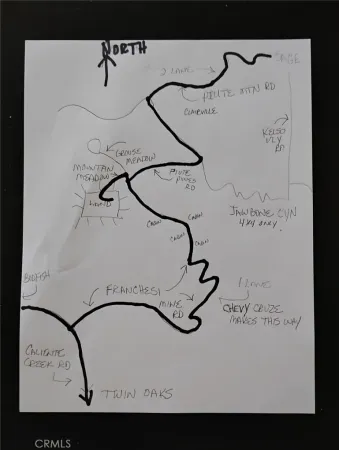 NORTH
SAGE
2 LANE
PIUTE MTN RD
CLARAVILLE
KELSO
VLY
RD
GROUSE
MEADOW
MOUNTAIN
MEADOW
PIUTE
RD
JAWBONE CYN
4X4 ONLY
CABIN
CABIN
CABIN
BODFISH
FRANCHESI
MINE
RD
1 LANE
CHEVY CRUZE
MAKES THIS WAY
CALIENTE
CREEK RD
TWIN OAKS
CRMLS